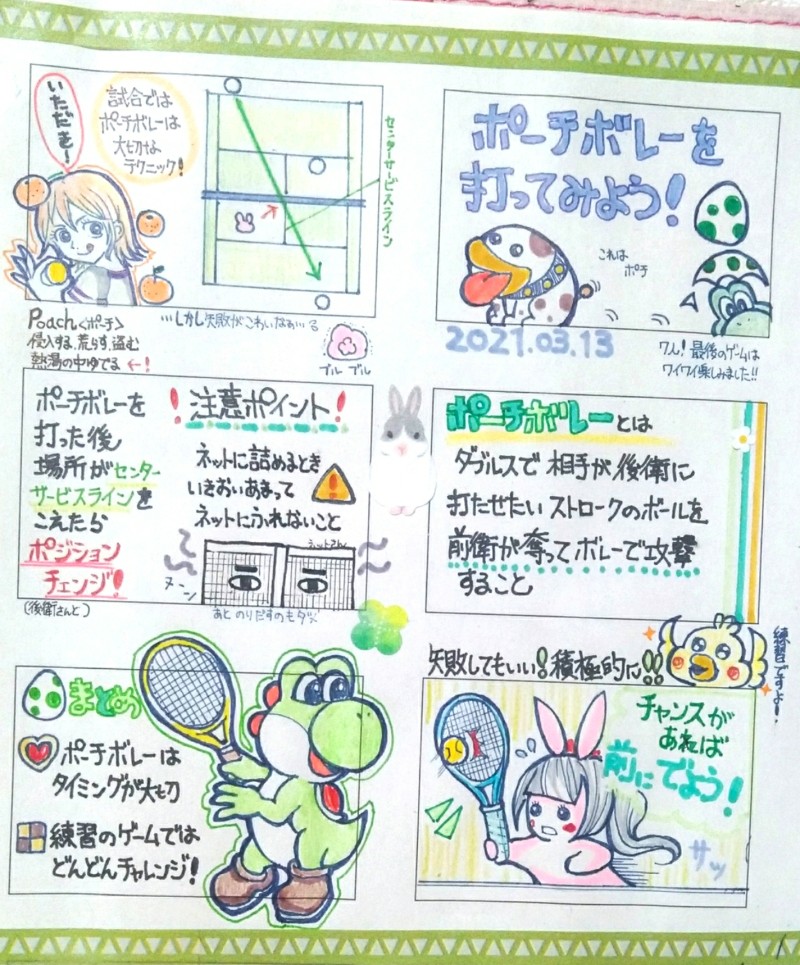 いただき!
試合では
ポーチボレーは
大切な
テクニック!
センターサービスライン
Poach<ポーチ>
侵入する、荒らす、盗む
熱湯の中ゆでる ←!
…しかし失敗がこわいなぁ…
ブル ブル
ポーチボレーを
打ってみよう!
これは
ポチ
2021.03.13
ワン! 最後のゲームは
ワイワイ楽しみました!!
ポーチボレーを
打った後
場所がセンター
サービスラインを
こえたら
ポジション
チェンジ!
(後衛さんと)
!注意ポイント!
ネットに詰めるとき
いきおいあまって
ネットにふれないこと
ネットさん
ヌーン
あと のりだすのもダメ
ポーチボレーとは
ダブルスで 相手が後衛に
打たせたい ストロークのボールを
前衛が奪ってボレーで攻撃
すること
練習ですよー!
まとめ
ポーチボレーは
タイミングが大切
練習のゲームでは
どんどんチャレンジ!
失敗してもいい!積極的に!!
チャンスが
あれば
前にでよう!
サッ